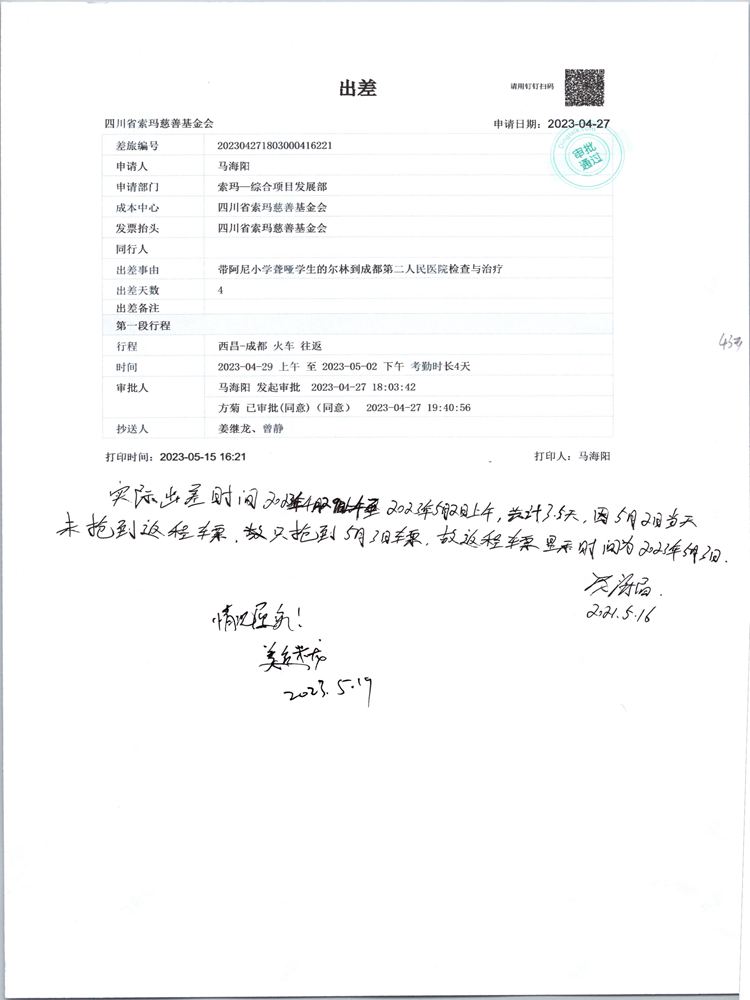 出差
请用钉钉扫码
四川省索玛慈善基金会 申请日期：2023-04-27
审批通过
差旅编号 202304271803000416221
申请人 马海阳
申请部门 索玛—综合项目发展部
成本中心 四川省索玛慈善基金会
发票抬头 四川省索玛慈善基金会
同行人
出差事由 带阿尼小学聋哑学生的尔林到成都第二人民医院检查与治疗
出差天数 4
出差备注
第一段行程
行程 西昌-成都 火车 往返
时间 2023-04-29 上午 至 2023-05-02 下午 考勤时长4天
审批人 马海阳 发起审批 2023-04-27 18:03:42
方菊 已审批(同意)（同意） 2023-04-27 19:40:56
抄送人 姜继龙、曾静
打印时间：2023-05-15 16:21 打印人：马海阳
实际出差时间 2023年5月2日上午，共计3.5天，因5月2日当天
未抢到返程车票，只抢到5月3日车票，故返程车票显示时间为2023年5月3日.
情况属实！
姜继龙
2023.5.19